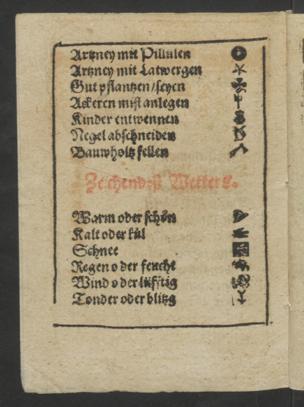 Artzney mit Pillulen
Artzney mit Latwergen
Gut pflantzen/seyen
Ackeren mist anlegen
Kinder entwennen
Negel abschneiden
Bauwholtz fellen
Zeichen deß Wetters.
Warm oder schön
Kalt oder kül
Schnee
Regen oder feucht
Wind oder lüfftig
Tonder oder blitzg